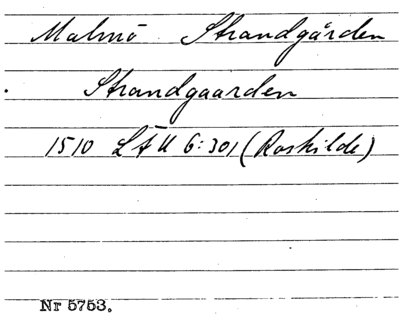 Malmö Strandgården
Strandgaarden
1510 LÄU 6:301 (Roskilde)
Nr 5753.